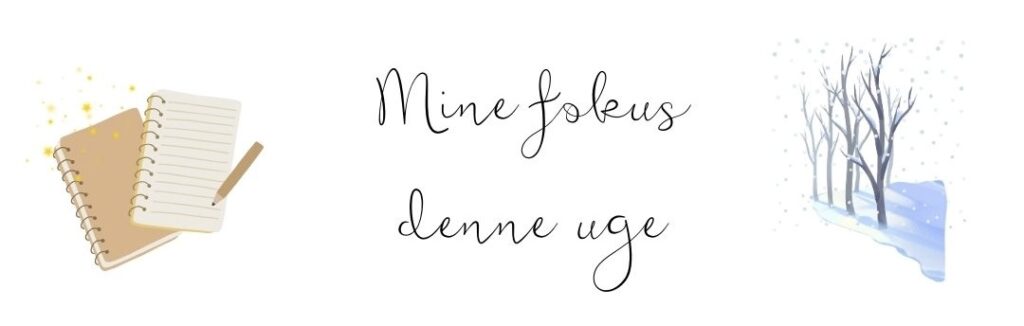 Mine fokus
denne uge